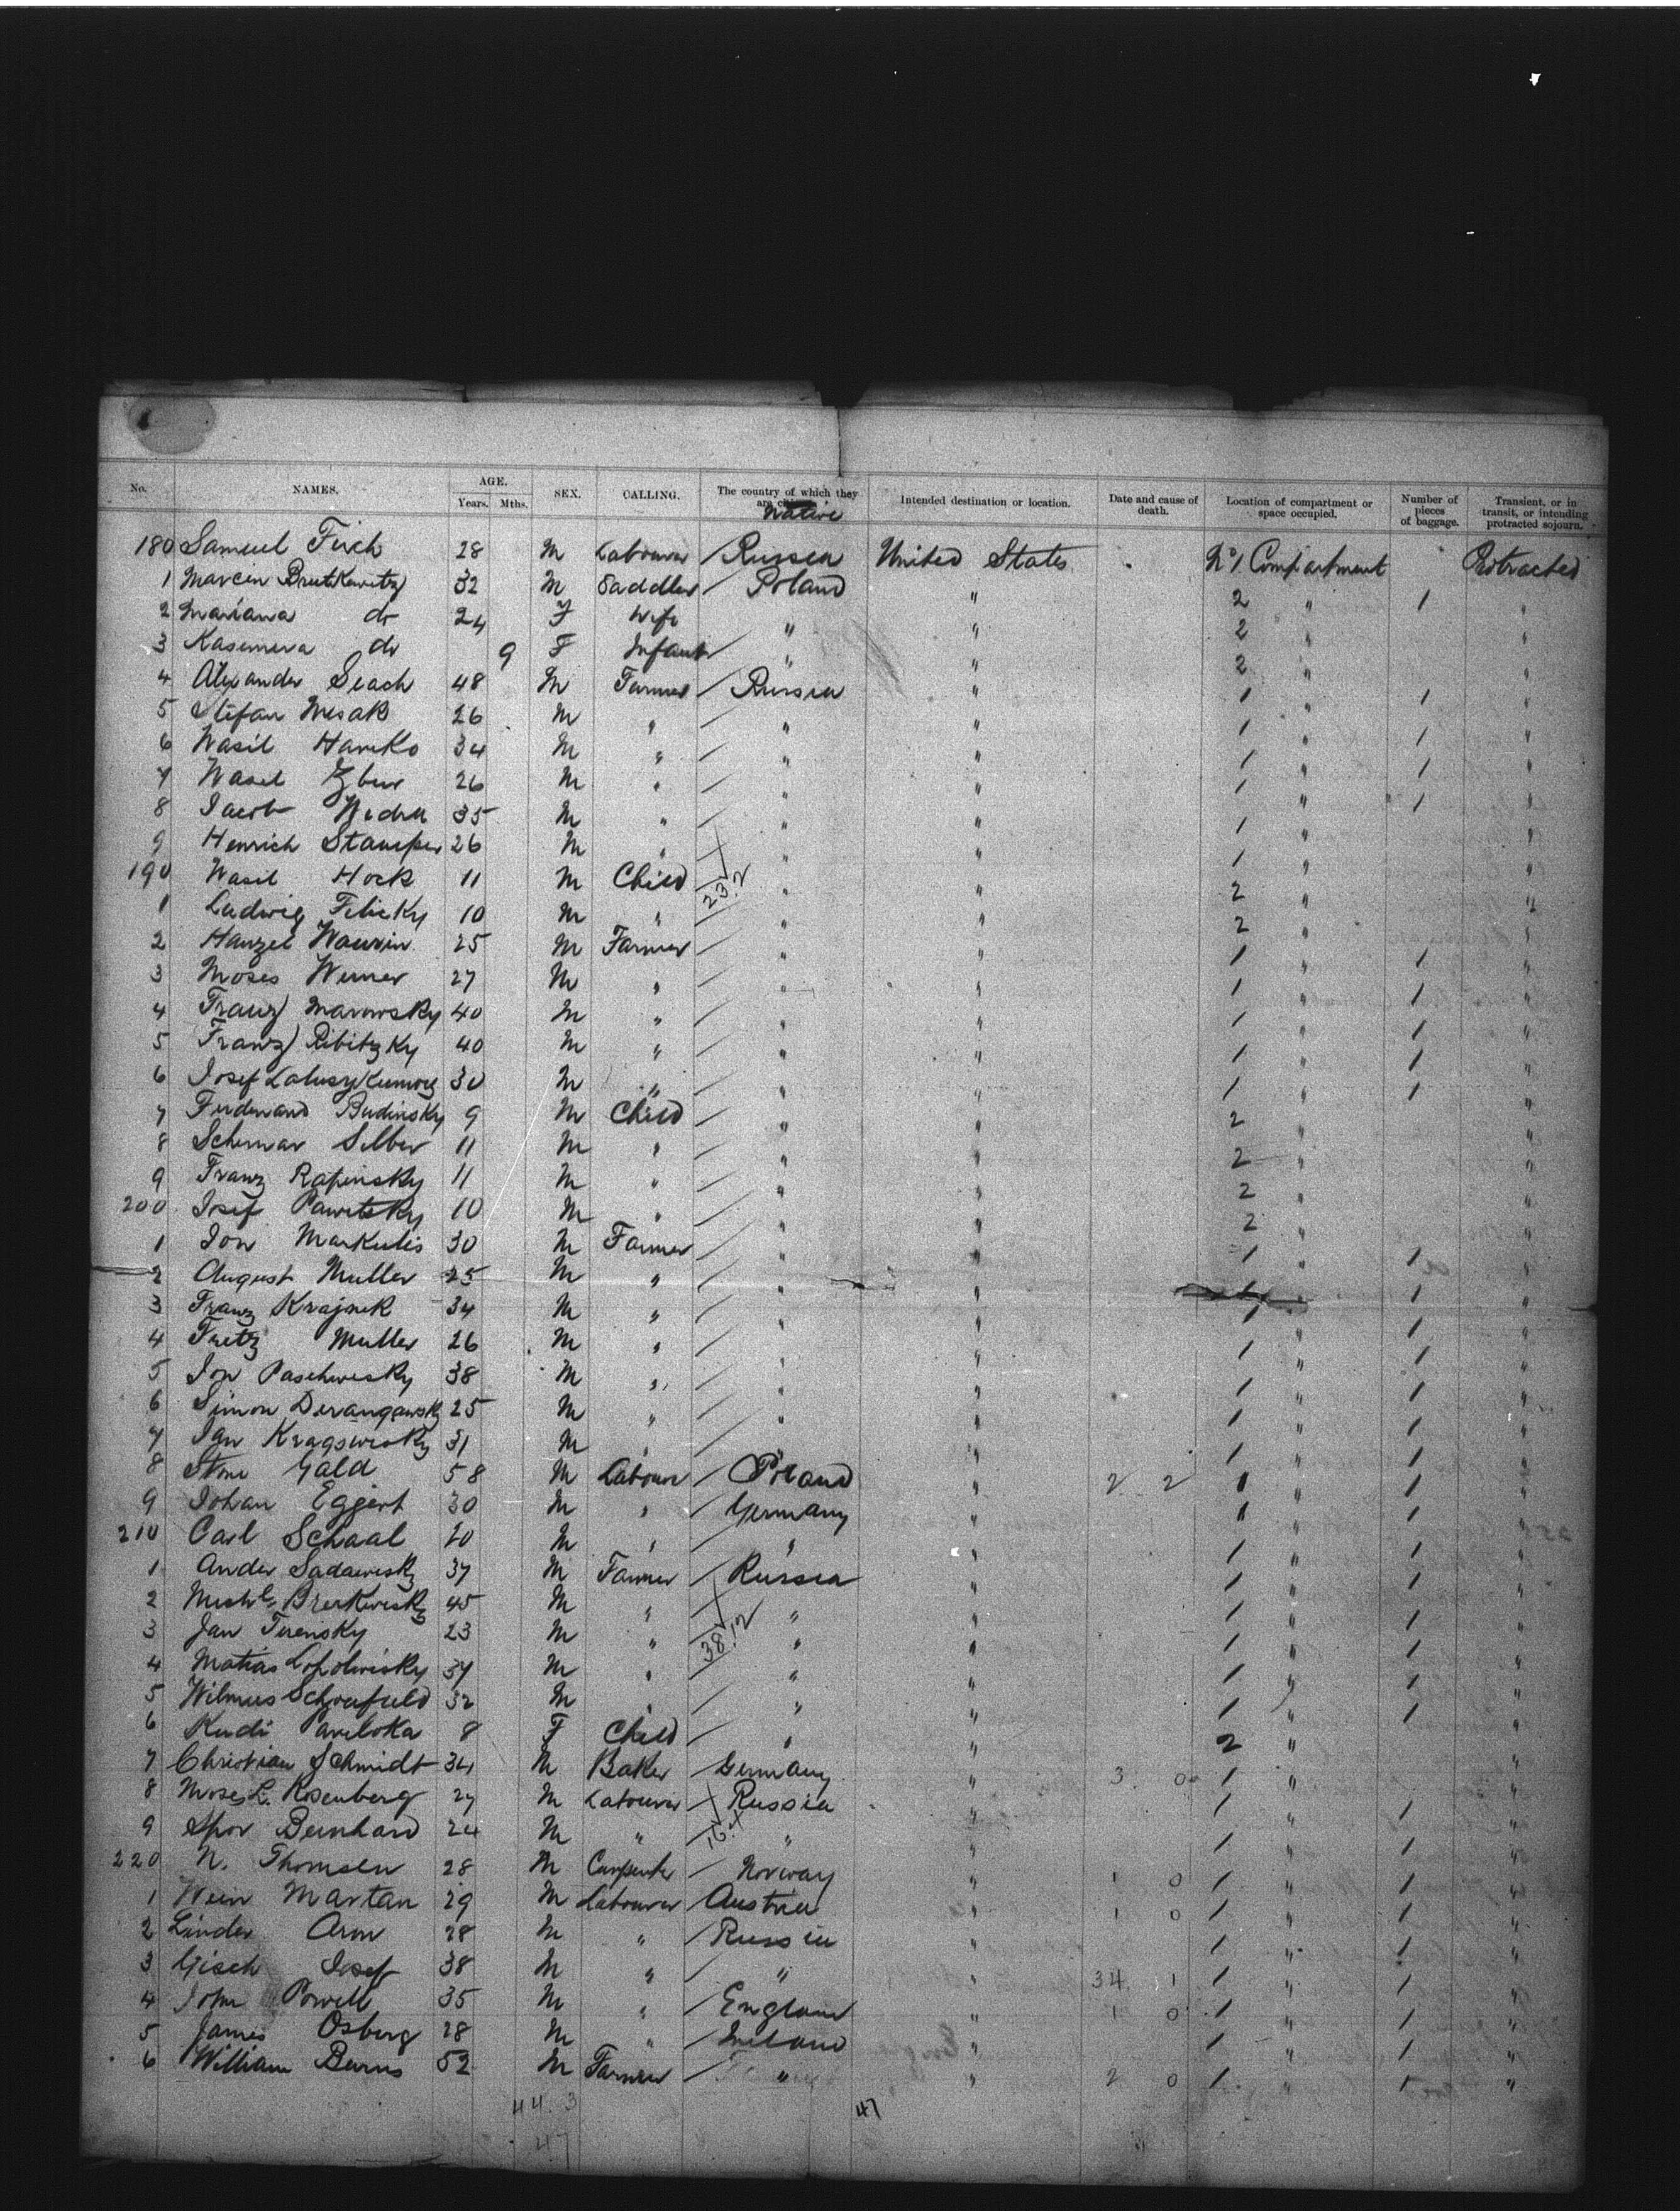 No. NAMES. AGE. Years. Mths. SEX. CALLING. The country of which they are native Intended destination or location. Date and cause of death. Location of compartment or space occupied. Number of pieces of baggage. Transient, or in transit, or intending protracted sojourn.
180 Samuel 28 M Labourer Russia United States No 1 Compartment Protracted
1 Marcin Brutkewitz 32 M Saddler Poland " 2 " 1 "
2 Mariana do 24 F Wife " " 2 " "
3 Kasimera do 9 F Infant " " 2 " "
4 Alexander Seach 48 M Farmer Russia " 1 " 1 "
5 Stefan 26 M " " " 1 " 1 "
6 Wasil 34 M " " " 1 " 1 "
7 Wasil 26 M " " " 1 " 1 "
8 Jacob 35 M " " " 1 " "
9 Henrich Stamper 26 M " " " 1 " "
190 Wasil Hock 11 M Child 23.2 " " 2 " "
1 Ludwig 10 M " " " 2 " "
2 25 M Farmer " " 1 " 1 "
3 Moses Werner 27 M " " " 1 " 1 "
4 Franz Marowsky 40 M " " " 1 " 1 "
5 Franz Ribitzky 40 M " " " 1 " 1 "
6 Josef 30 M " " " 1 " 1 "
7 Ferdinand Budinsky 9 M Child " " 2 " "
8 Silber 11 M " " " 2 " "
9 Franz Rapinsky 11 M " " " 2 " "
200 Josef Pawitsky 10 M " " " 2 " "
1 Jon Markulis 30 M Farmer " " 1 " 1 "
2 August Muller 25 M " " " 1 " 1 "
3 Franz Krajnek 34 M " " " 1 " 1 "
4 Fritz Muller 26 M " " " 1 " 1 "
5 Jon Paschwesky 38 M " " " 1 " 1 "
6 Simon 25 M " " " 1 " 1 "
7 Jan 31 M " " " 1 " 1 "
8 Gald 58 M Labour Poland " 2 2 1 " 1 "
9 Johan Eggert 30 M " Germany " 1 " 1 "
210 Carl Schaal 20 M " " " 1 " 1 "
1 Ander Sadawesky 37 M Farmer Russia " 1 " 1 "
2 45 M " " " 1 " 1 "
3 Jan 23 M " 38.12 " " 1 " 1 "
4 Matias 37 M " " " 1 " 1 "
5 32 M " " " 1 " 1 "
6 8 F Child " " 2 " "
7 Christian Schmidt 34 M Baker Germany " 3 0 1 " "
8 Moses L. Rosenberg 27 M Labourer Russia " 1 " 1 "
9 Bernhard 24 M " 16.4 " " 1 " 1 "
220 N. Thomsen 28 M Carpenter Norway " 1 0 1 " 1 "
1 Wein Martan 29 M Labourer Austria " 1 0 1 " 1 "
2 Linder Aron 28 M " Russia " 1 " 1 "
3 Gisch Josef 38 M " " " 34 1 1 " 1 "
4 John Powell 35 M " England " 1 0 1 " 1 "
5 James Osberg 28 M " Ireland " 1 " 1 "
6 William Burns 52 M Farmer " " 2 0 1 " 1 "
44. 3 47
47